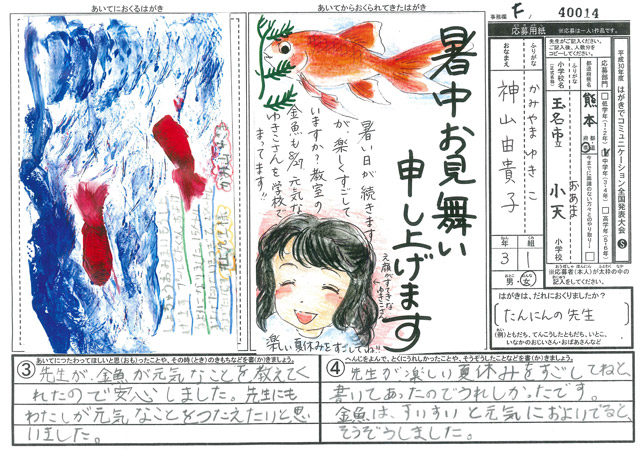 あいてにおくるはがき
あいてからおくられてきたはがき
事務欄 F, 40014
応募用紙
※応募は一人1作品です。
先生がご記入ください。
ご記入後、人数分を
コピーしてください。
平成30年度 はがきでコミュニケーション全国発表大会 S
応募部門
低学年(1・2年)
中学年(3・4年)
高学年(5・6年)
都道府県名
熊本
都道府県
小学校名
(正式名称)
玉名市立
おあま
小天
小学校
ふりがな
かみやま ゆきこ
おなまえ
神山由貴子
年 3
組 1
男・女
※応募者(本人)が太枠の中を
記入してください。
はがきは、だれにおくりましたか?
たんにんの先生
(例)ともだち、てんこうしたともだち、いとこ、
いなかのおじいさん・おばあさんなど
暑中お見舞い
申し上げます
暑い日が続きます
が、楽しくすごして
いますか?教室の
金魚も8/27 元気な
ゆきこさんを学校で
まってます!!
えがおがすてきな
ゆきこさん
楽しい夏休みをすごしてね!!
あいてにつたわってほしいと思(おも)ったことや、その時(とき)のきもちなどを書(か)きましょう。
③ 先生が、金魚が元気なことを教えてく
れたので安心しました。先生にも
わたしが元気なことをつたえたいと思
いました。
へんじをよんで、とくにうれしかったことや、そうぞうしたことなどを書(か)きましょう。
④ 先生が楽しい夏休みをすごしてねと、
書いてあったのでうれしかったです。
金魚は、すいすいと元気におよいでると、
そうぞうしました。